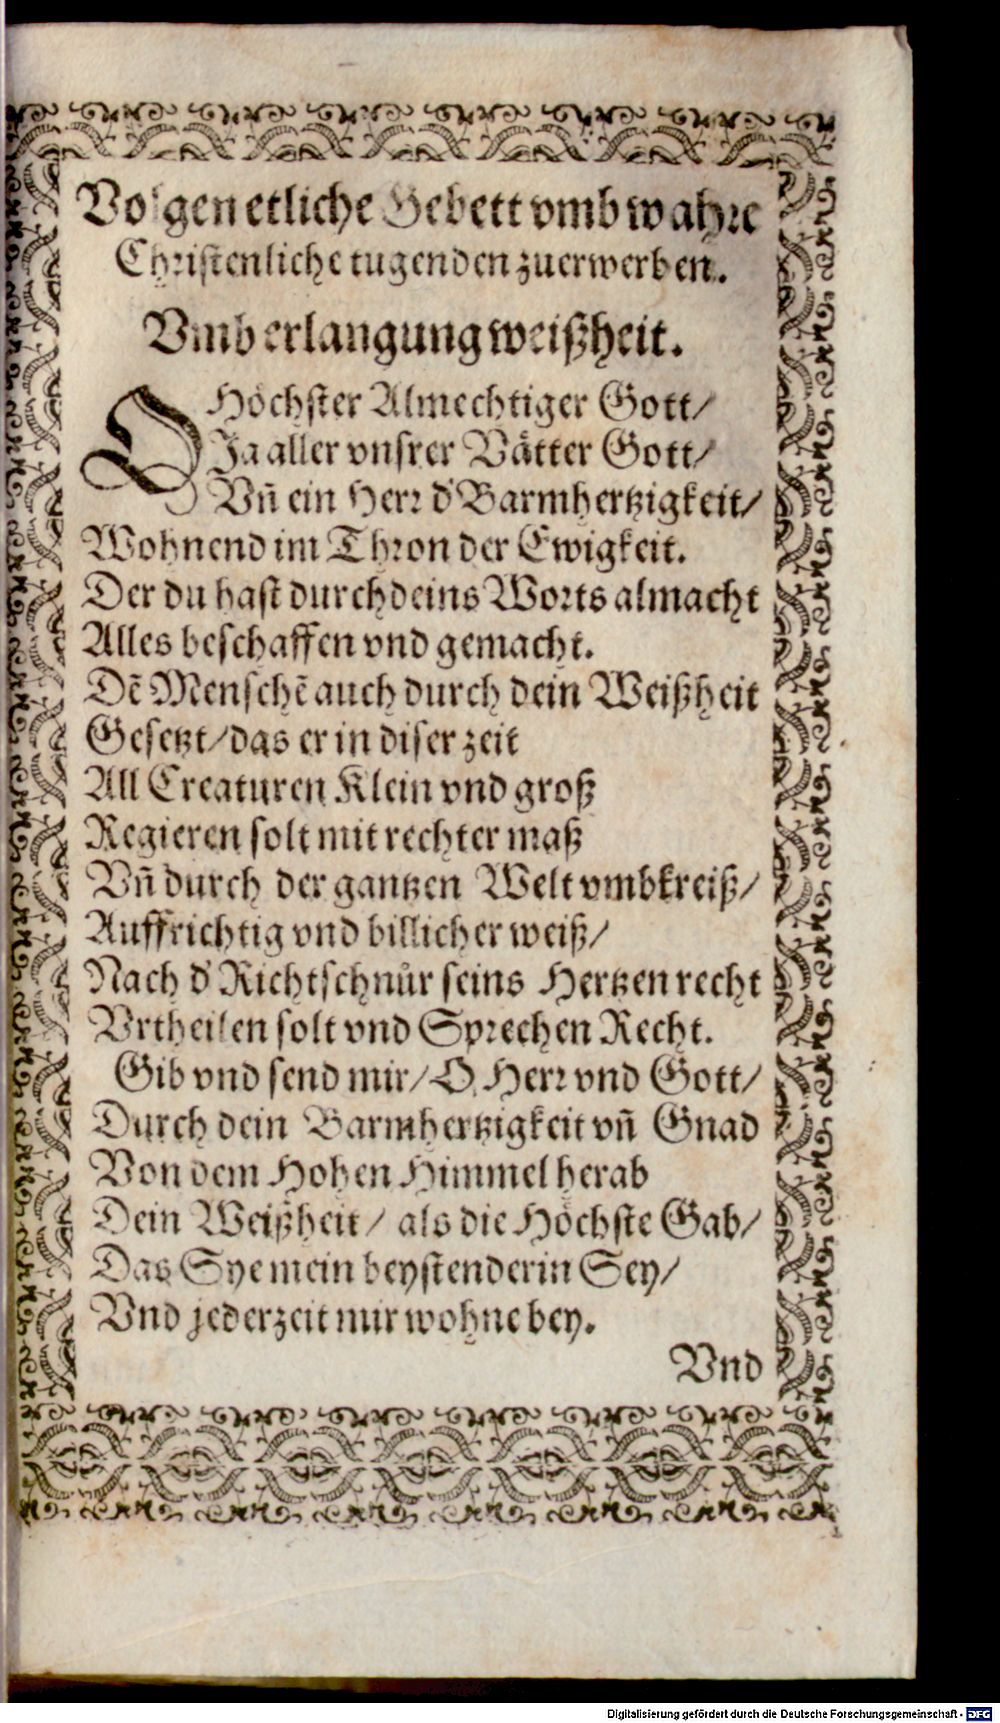 Volgen etliche Gebett vmb wahre
Christenliche tugenden zuerwerben.
Vmb erlangung weißheit.
O Höchster Almechtiger Gott/
Ja aller vnsrer Vätter Gott/
Vñ ein Herr d' Barmhertzigkeit/
Wohnend im Thron der Ewigkeit.
Der du hast durch deins Worts almacht
Alles beschaffen vnd gemacht.
Dẽ Menschẽ auch durch dein Weißheit
Gesetzt/ das er in diser zeit
All Creaturen Klein vnd groß
Regieren solt mit rechter maß
Vñ durch der gantzen Welt vmbkreiß/
Auffrichtig vnd billicher weiß/
Nach d' Richtschnůr seins Hertzen recht
Vrtheilen solt vnd Sprechen Recht.
Gib vnd send mir/ O Herr vnd Gott/
Durch dein Barmhertzigkeit vñ Gnad
Von dem Hohen Himmel herab
Dein Weißheit/ als die Höchste Gab/
Das Sye mein beystenderin Sey/
Vnd jederzeit mir wohne bey.
Vnd
Digitalisierung gefördert durch die Deutsche Forschungsgemeinschaft - DFG